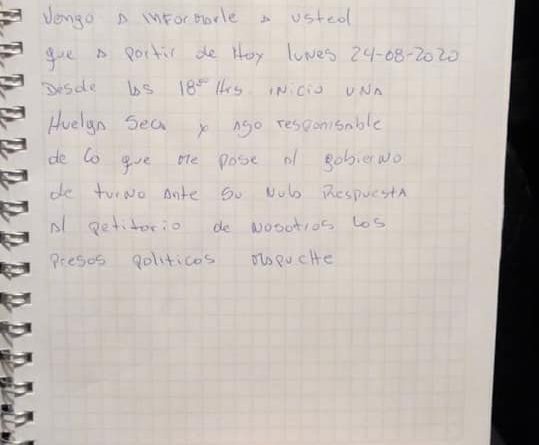 Vengo A INFORMARle A usted
que A partir de Hoy lunes 24-08-2020
Desde las 18⁰⁰ Hrs iNiCio UNA
Huelga Seca y Ago responsable
de lo que me pase al gobierno
de turno Ante su Nula RespuestA
Al petitorio de Nosotros los
Presos politicos mapucHe